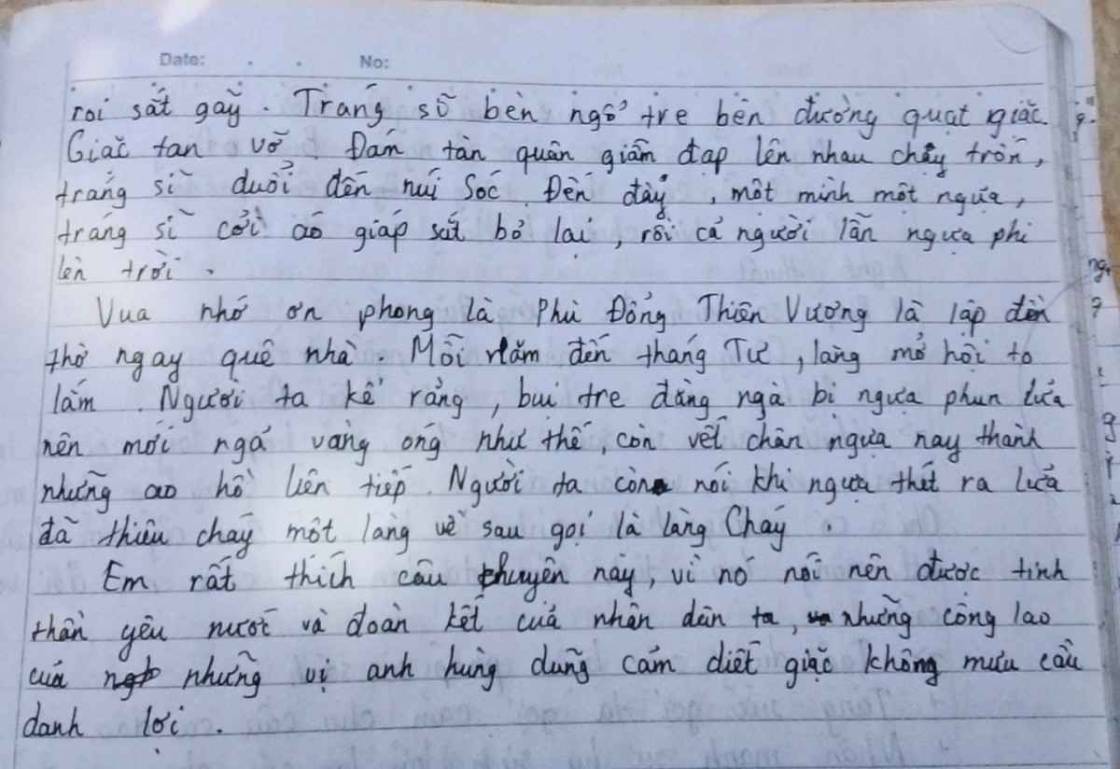 Date: . . No:
roi sắt gãy. Tráng sĩ bèn ngổ tre bên đường quạt giặc.
Giặc tan vỡ. Đám tàn quân giẫm đạp lên nhau chạy trốn,
tráng sĩ đuổi đến núi Sóc. Đến đây, một mình một ngựa,
tráng sĩ cởi áo giáp sắt bỏ lại, rồi cả người lẫn ngựa phi
lên trời.
Vua nhớ ơn phong là Phù Đổng Thiên Vương là lập đền
thờ ngay quê nhà. Mỗi năm đến tháng Tư, làng mở hội to
lắm. Người ta kể rằng, bụi tre đằng ngà bị ngựa phun lửa
nên mới ngả vàng óng như thế, còn vết chân ngựa nay thành
những ao hồ liên tiếp. Người ta còn nói khi ngựa thét ra lửa
đã thiêu cháy một làng về sau gọi là làng Cháy.
Em rất thích câu chuyện này, vì nó nói nên được tinh
thần yêu nước và đoàn kết của nhân dân ta, những công lao
của những vị anh hùng dũng cảm diệt giặc không mưu cầu
danh lợi.